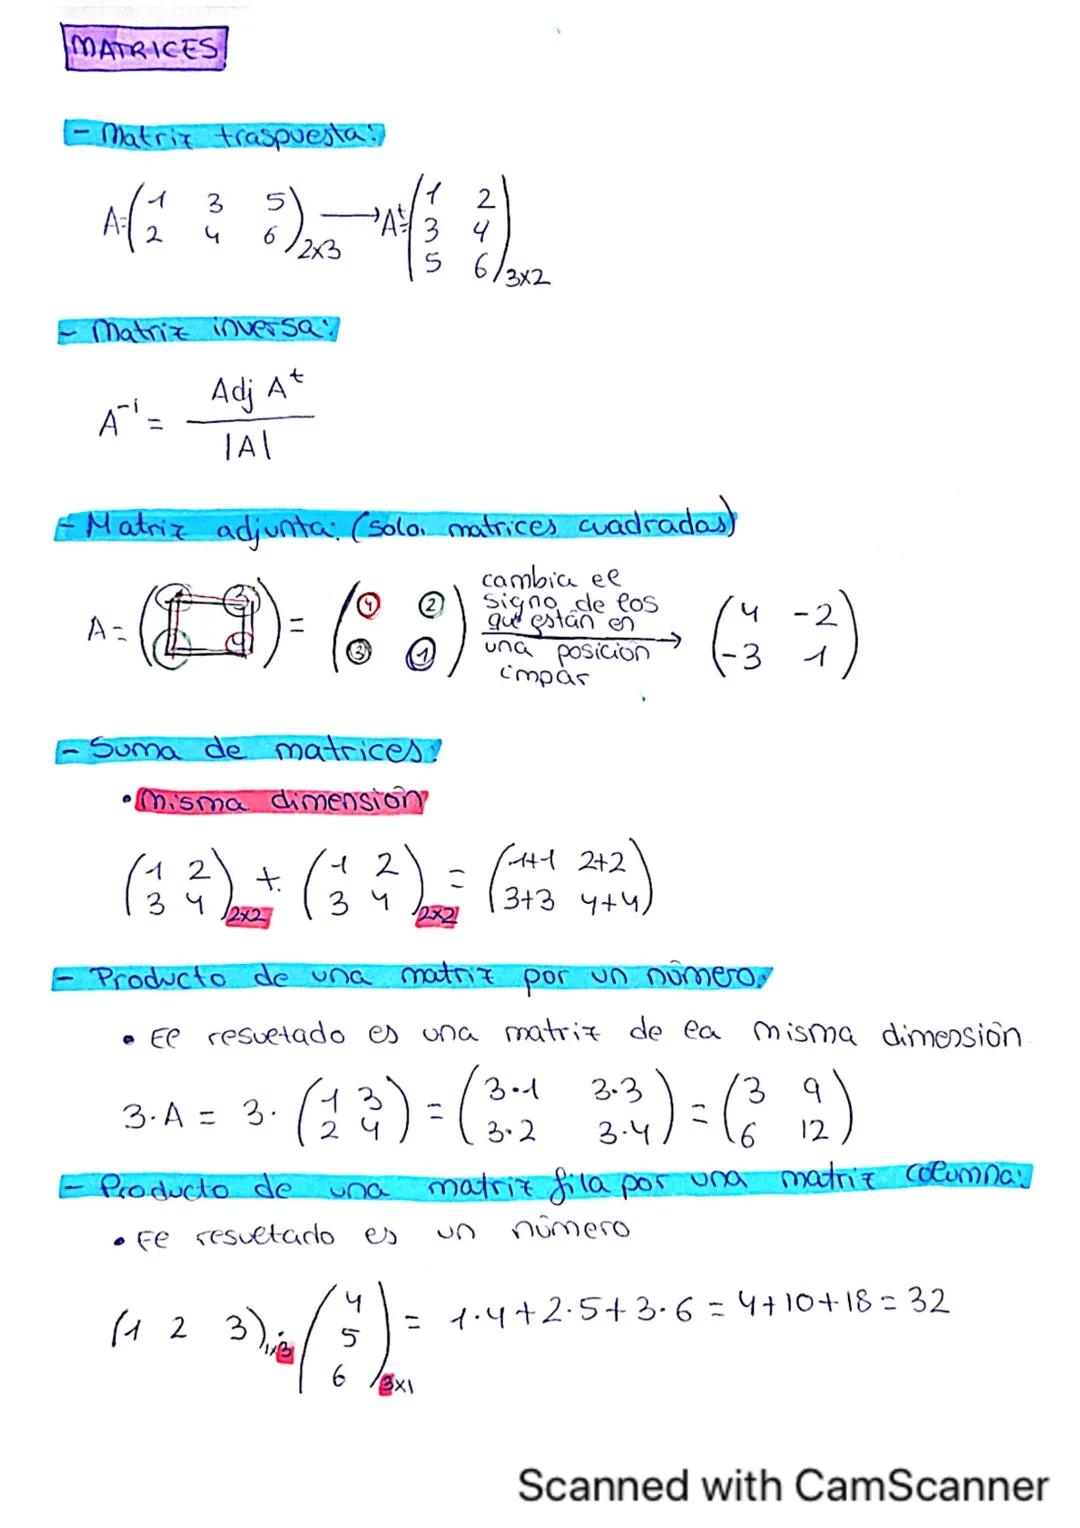 MATRICES
- Matriz traspuesta:
A=(1 3 5
2 4 6)2x3 → Aᵗ=(1 2
3 4
5 6)3x2
- Matriz inversa:
A⁻¹ = Adj Aᵗ
|A|
- Matriz adjunta: (solo matrices cuadradas)
A= ( 3
4 ) = (4 2
3 1) cambia el signo de los que están en una posición impar → (4 -2
-3 1)
- Suma de matrices:
• Misma dimensión
(1 2
3 4)2x2 + (1 2
3 4)2x2 = (1+1 2+2
3+3 4+4)
- Producto de una matriz por un número:
• El resultado es una matriz de la misma dimensión.
3·A = 3· (1 3
2 4) = (3·1 3·3
3·2 3·4) = (3 9
6 12)
- Producto de una matriz fila por una matriz columna:
• El resultado es un número
(1 2 3)1x3 · (4
5
6)3x1 = 1·4+2·5+3·6 = 4+10+18 = 32
Scanned with CamScanner